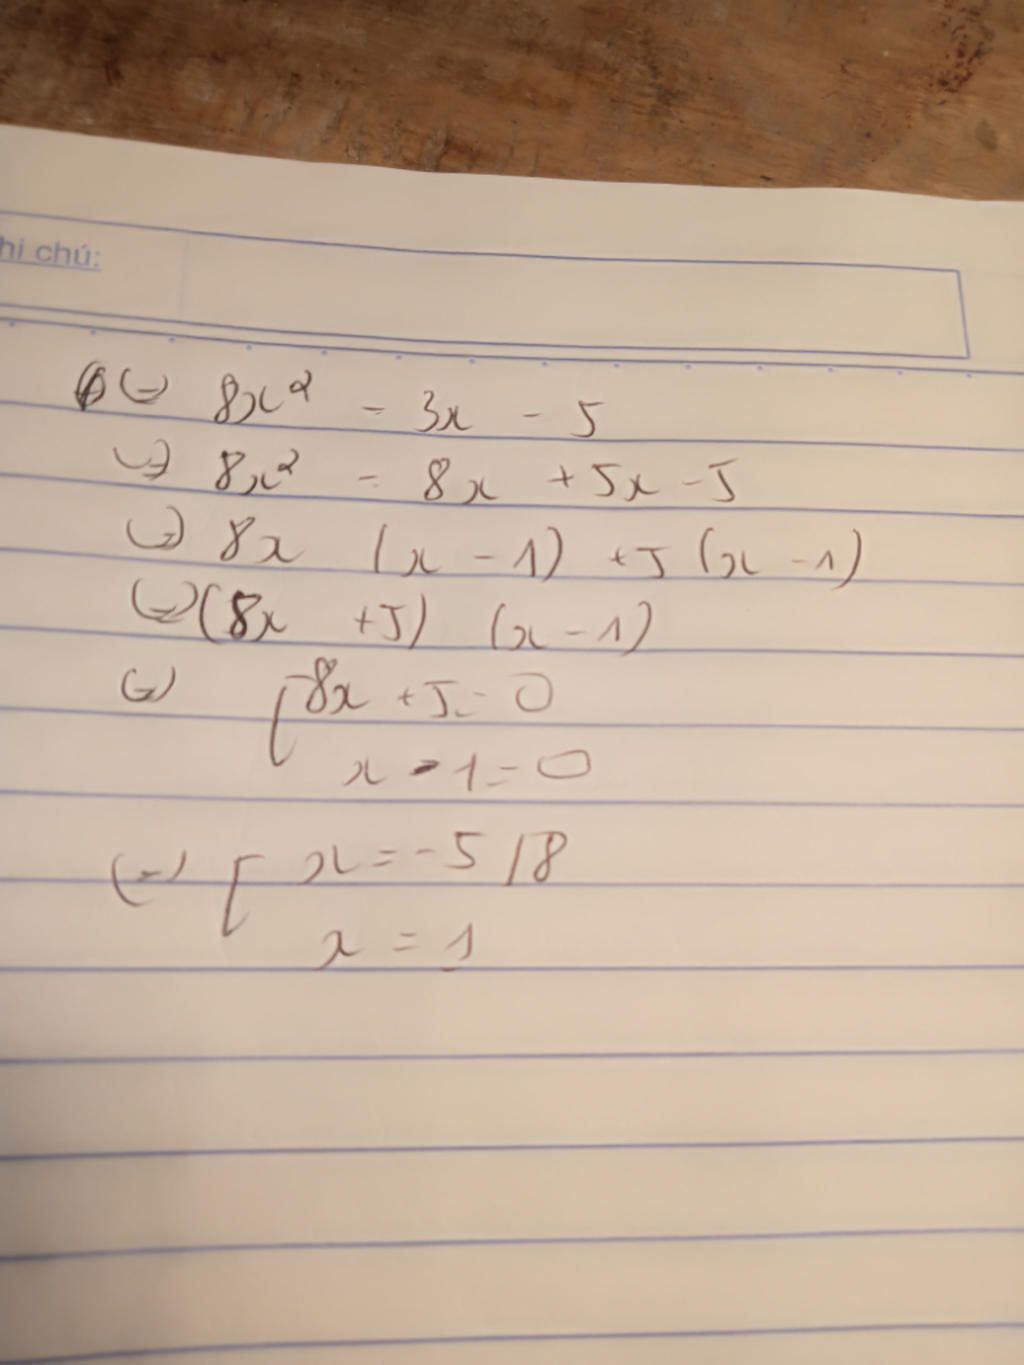 hi chú:
(=) 8x² - 3x - 5
(=) 8x² - 8x + 5x - 5
(=) 8x (x - 1) + 5 (x - 1)
(=) (8x + 5) (x - 1)
(=) [ 8x + 5 = 0
x - 1 = 0
(=) [ x = -5 / 8
x = 1